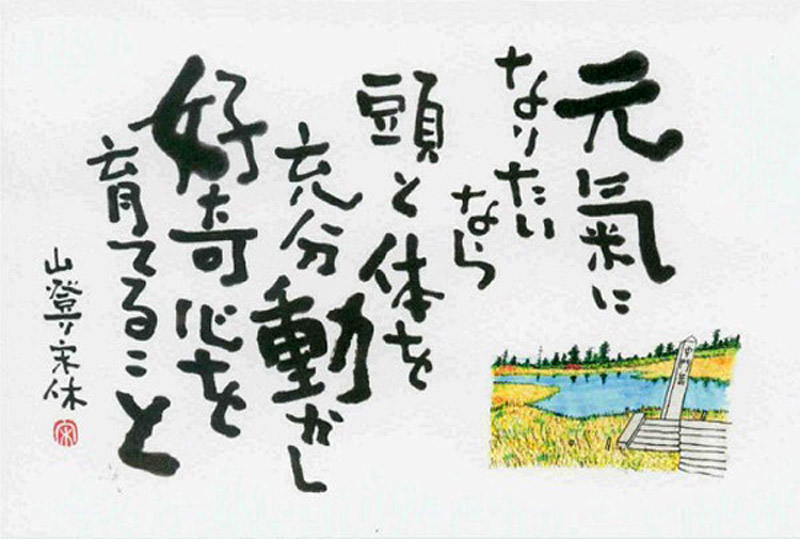 元氣に
なりたい
なら
頭と体を
充分動かし
好奇心を
育てること
山登り宋休